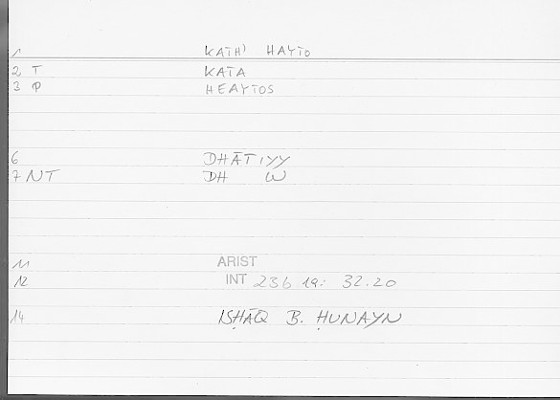 1 KATH' HAYTO
2 T KATA
3 P HEAYTOS
6 DHĀTIYY
7 NT DH W
11 ARIST
12 INT 236 19: 32.20
14 ISḤĀQ B. ḤUNAYN